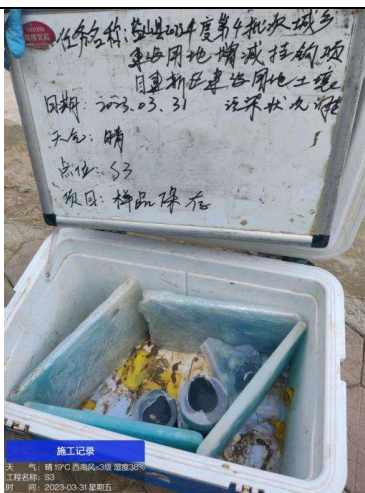 任务名称:盐山县2024度第4批次城乡
建设用地增减挂钩项
目建新区建设用地土壤
日期:2023.03.31 污染状况调查
天气:晴
点位:S3
项目:样品保存
施工记录
天 气:晴 19°C 西南风≤3级 湿度38%
工程名称:S3
时 间:2023-03-31 星期五